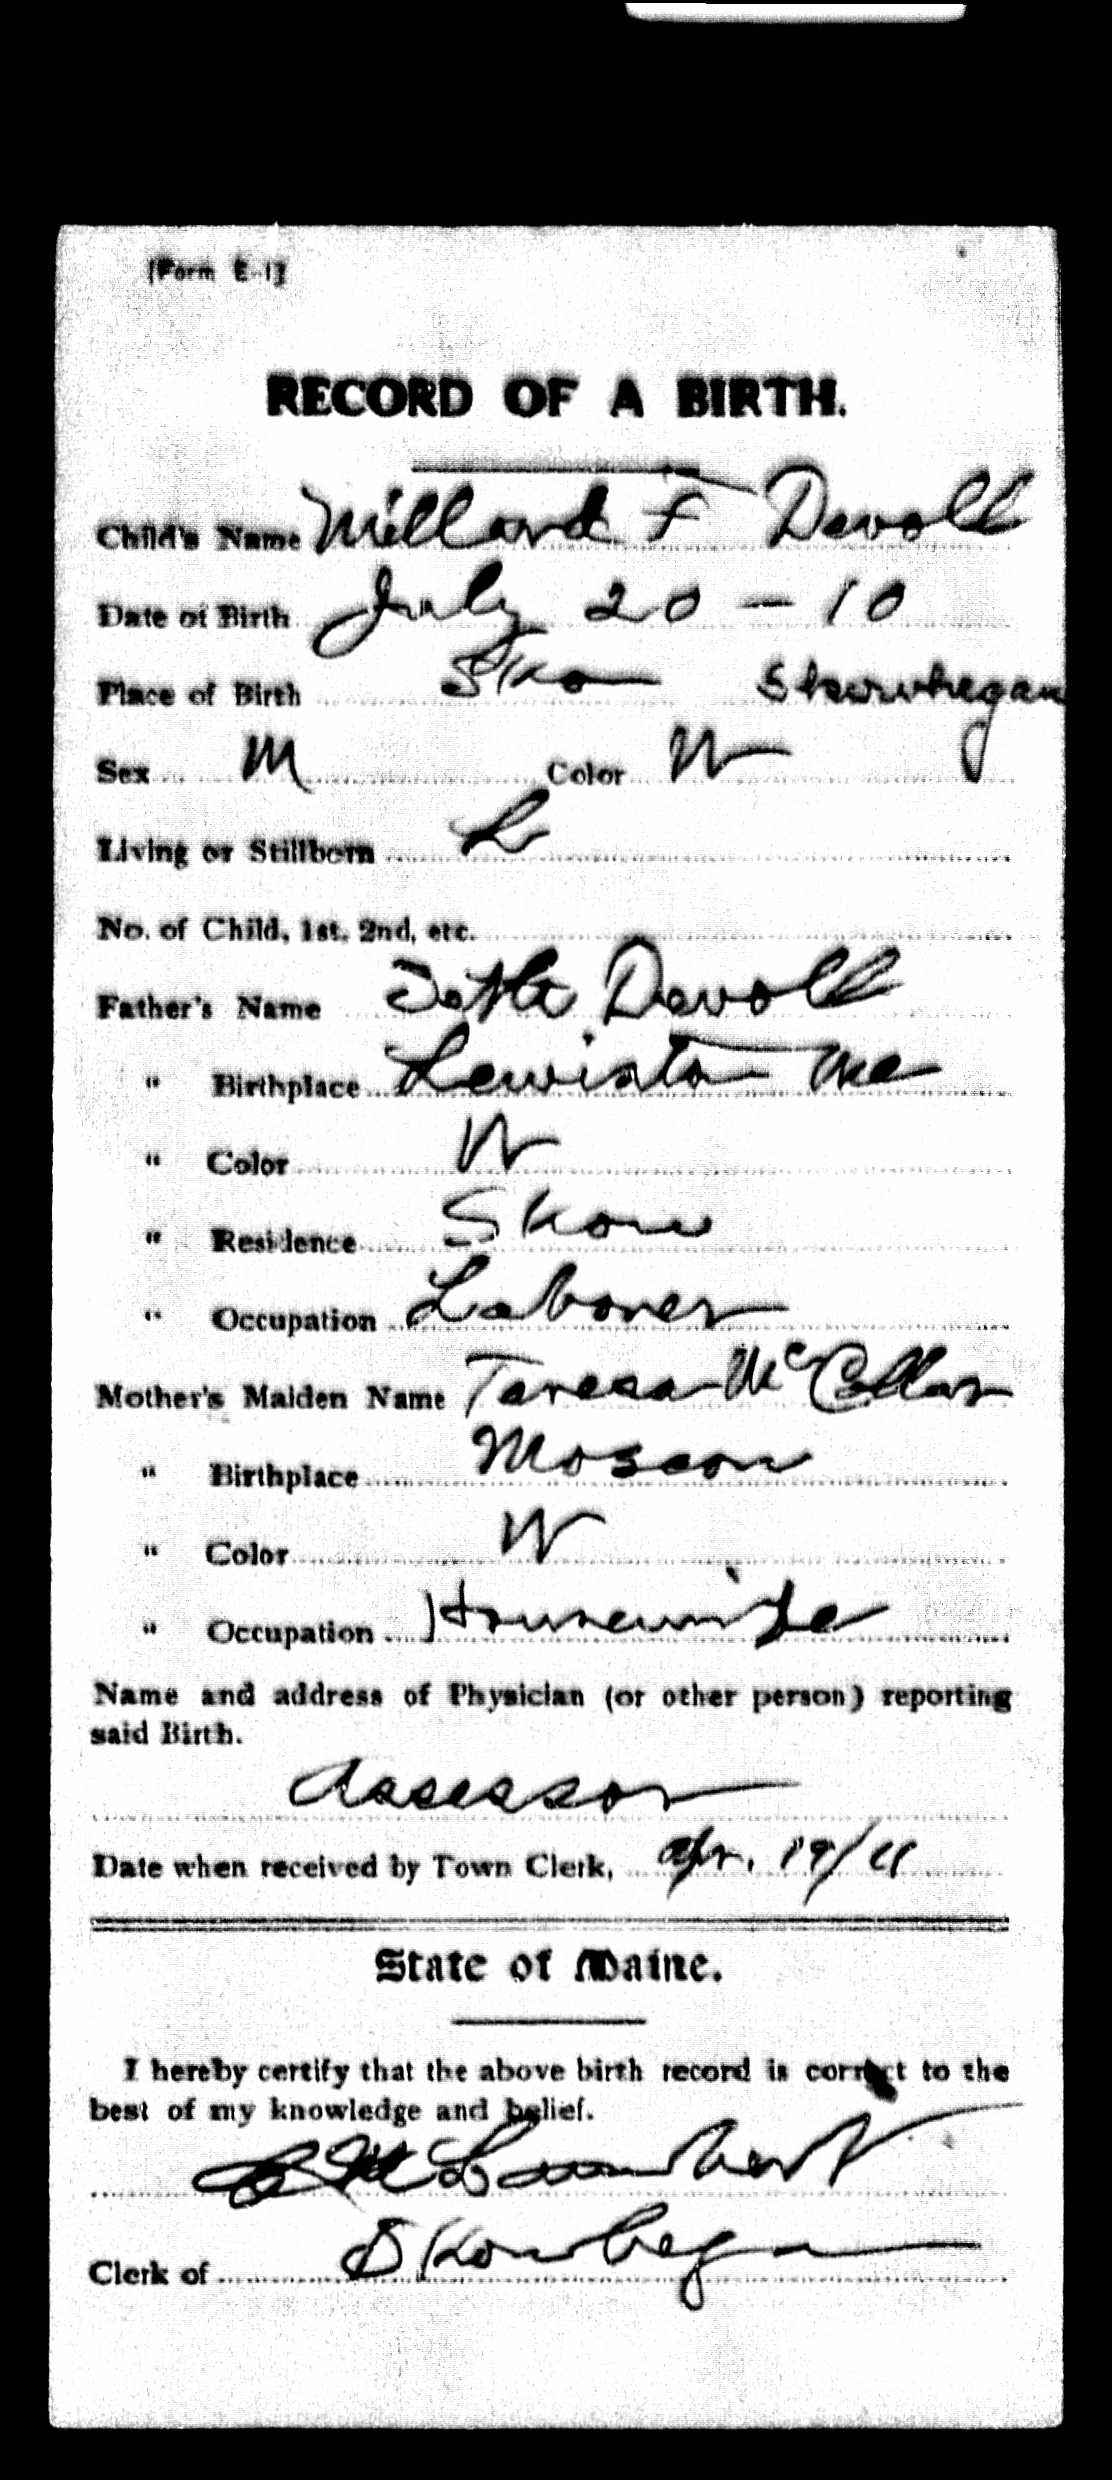 [Form E-1]
RECORD OF A BIRTH.
Child's Name Millard F Devoll
Date of Birth July 20 - 10
Place of Birth Skow Skowhegan
Sex M Color W
Living or Stillborn L
No. of Child, 1st, 2nd, etc.
Father's Name Devoll
" Birthplace Lewiston Me
" Color W
" Residence Skow
" Occupation Laborer
Mother's Maiden Name Teresa McCollar
" Birthplace Moscow
" Color W
" Occupation Housewife
Name and address of Physician (or other person) reporting
said Birth.
Assessor
Date when received by Town Clerk, Apr. 19/11
State of Maine.
I hereby certify that the above birth record is correct to the
best of my knowledge and belief.
Lambert
Clerk of Skowhegan